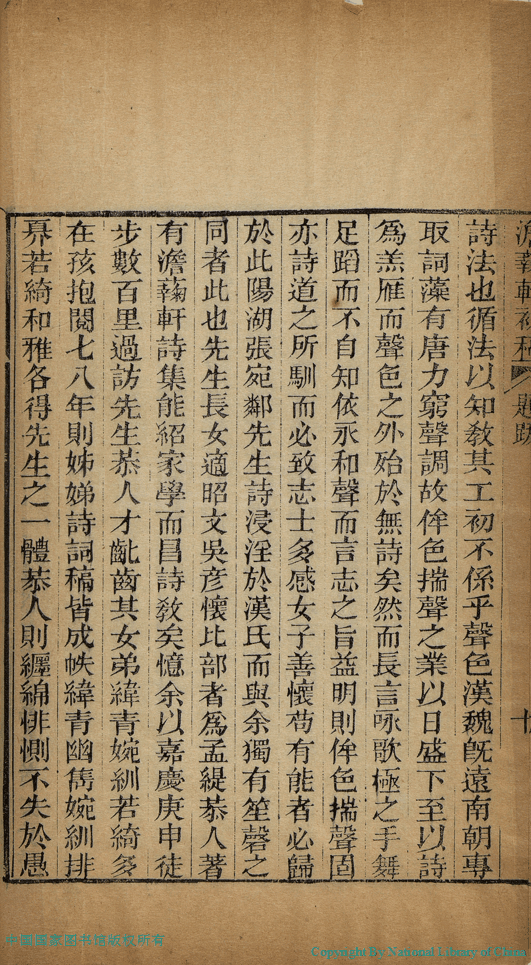 澹蘜軒初稿 題跋 十
詩法也循法以知敎其工初不係乎聲色漢魏旣遠南朝專
取詞藻有唐力窮聲調故侔色揣聲之業以日盛下至以詩
爲羔雁而聲色之外殆於無詩矣然而長言咏歌極之手舞
足蹈而不自知依永和聲而言志之旨益明則侔色揣聲固
亦詩道之所馴而必致志士多感女子善懷苟有能者必歸
於此陽湖張宛鄰先生詩浸淫於漢氏而與余獨有笙磬之
同者此也先生長女適昭文吳彥懷比部者爲孟緹恭人著
有澹蘜軒詩集能紹家學而昌詩敎矣憶余以嘉慶庚申徒
步數百里過訪先生恭人才齔齒其女弟緯青婉紃若綺多
在孩抱閱七八年則姊娣詩詞稿皆成帙緯青幽雋婉紃排
奡若綺和雅各得先生之一體恭人則纒綿悱惻不失於愚
中國國家图书馆版权所有
Copyright By National Library of China